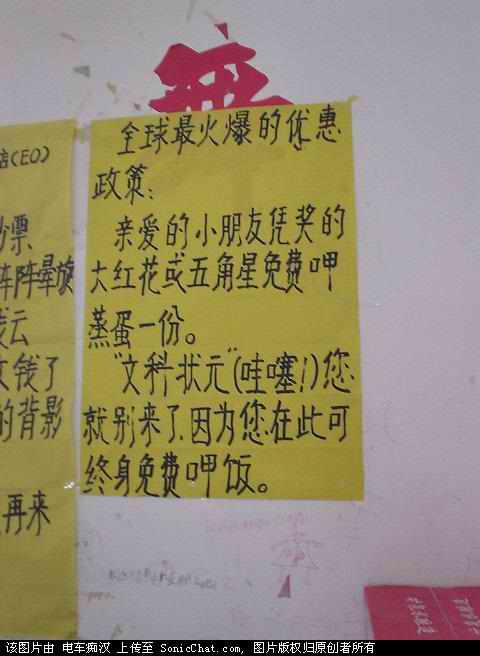 全球最火爆的优惠
政策:
亲爱的小朋友凭奖的
大红花或五角星免费呷
蒸蛋一份。
"文科状元"(哇噻!)您
就别来了.因为您在此可
终身免费呷饭。
店(EO)
票
阵阵晕旋
云
钱了
的背影
再来
该图片由 电车痴汉 上传至 SonicChat.com, 图片版权归原创者所有